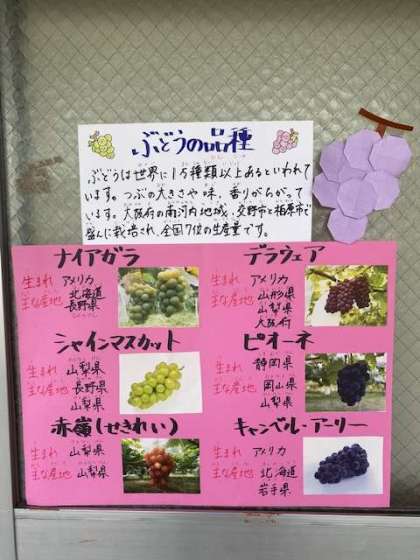 ぶどうの品種
ぶどうは世界に1万種類以上あるといわれて
います。つぶの大きさや味、香りがちがって
います。大阪府の南河内地域、交野市と柏原市で
盛んに栽培され、全国7位の生産量です。
ナイアガラ
生まれ アメリカ
主な産地 北海道
長野県
デラウェア
生まれ アメリカ
主な産地 山形県
山梨県
大阪府
シャインマスカット
生まれ 山梨県
主な産地 長野県
山梨県
ピオーネ
生まれ 静岡県
主な産地 岡山県
山梨県
赤嶺(せきれい)
生まれ 山梨県
主な産地 山梨県
キャンベル・アーリー
生まれ アメリカ
主な産地 北海道
岩手県